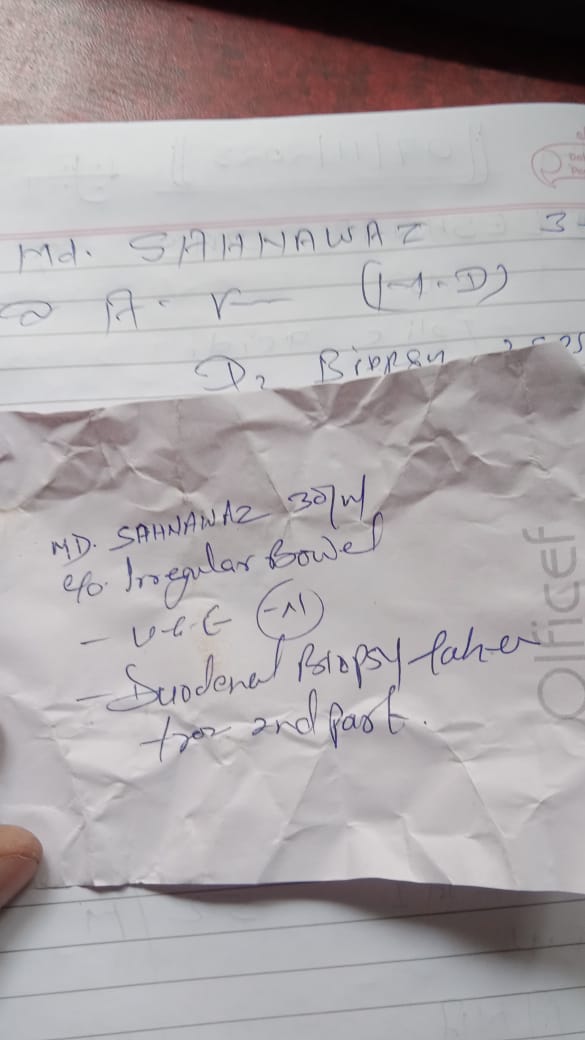 Md. SAHNAWAZ 3
A.
D2 Biopsy
MD. SAHNAWAZ 30/M
c/o. Irregular Bowel
- UGE -N
- Duodenal Biopsy taken
from 2nd part.
Officef